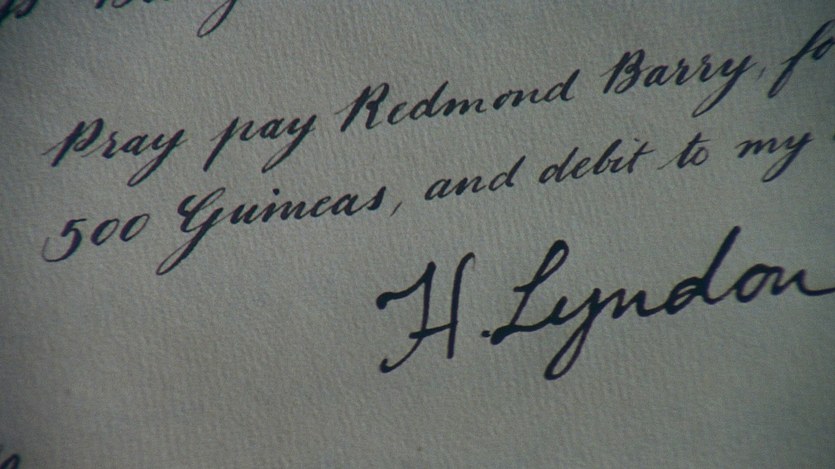 Pray pay Redmond Barry, fo
500 Guineas, and debit to my
H. Lyndon